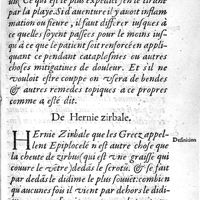 par la playe. Si d'auenture il y auoit inflam
mation ou fieure, il faut differer iusques à
ce quelles soyent passées pour le moins ius
qu'à ce que le patient soit renforcé en appli
quant ce pendant cataplasmes ou autres
choses mitigatiues de douleur. Et si il ne
vouloit estre couppé on vsera de bendes
& autres remedes topiques à ce propres
comme a esté dit.
De Hernie zirbale.
HErnie Zirbale que les Grecz appel-
lent Epiplocelé n'est autre chose que
la cheute de zirbus qui est vne graisse qui
couure le vẽtre dedãs le scrotũ. & se fait
par dedãs le didime fort souuẽt: combien
qu'aucunes fois il vient par dehors le didi-
Definition